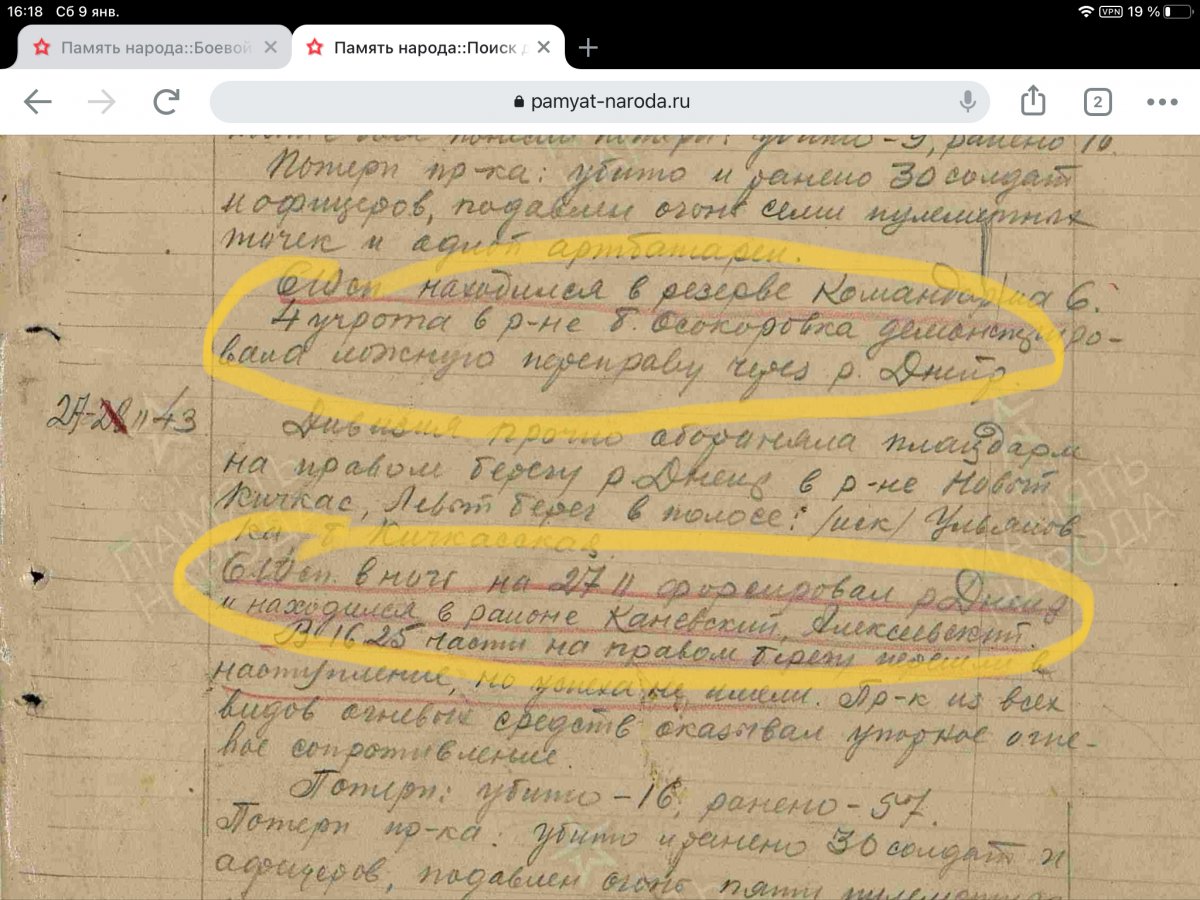 16:18 Сб 9 янв.
VPN 19 %
Память народа::Боевой
Память народа::Поиск д
pamyat-naroda.ru
2
понесла потери: убито -9, ранено 16.
Потери пр-ка: убито и ранено 30 солдат
и офицеров, подавлен огонь семи пулеметных
точек и одной артбатареи.
610сп находился в резерве Командарма 6.
4 учрота в р-не б. Осокоровка демонстриро-
вала ложную переправу через р. Днепр.
27- 11 43
Дивизия прочно обороняла плацдарм
на правом берегу р. Днепр в р-не Новый
Кичкас, Левый берег в полосе: /иск/ Ульянов-
ка, б. Кичкасская.
610сп в ночь на 27 11 форсировал р. Днепр
и находился в районе Каневский, Алексеевский.
В 16 25 части на правом берегу перешли в
наступление, но успеха не имели. Пр-к из всех
видов огневых средств оказывал упорное огне-
вое сопротивление.
Потери: убито -16, ранено -57.
Потери пр-ка: убито и ранено 30 солдат и
офицеров, подавлен огонь пяти
ПАМЯТЬ
НАРОДА
ПАМЯТЬ
НАРОДА